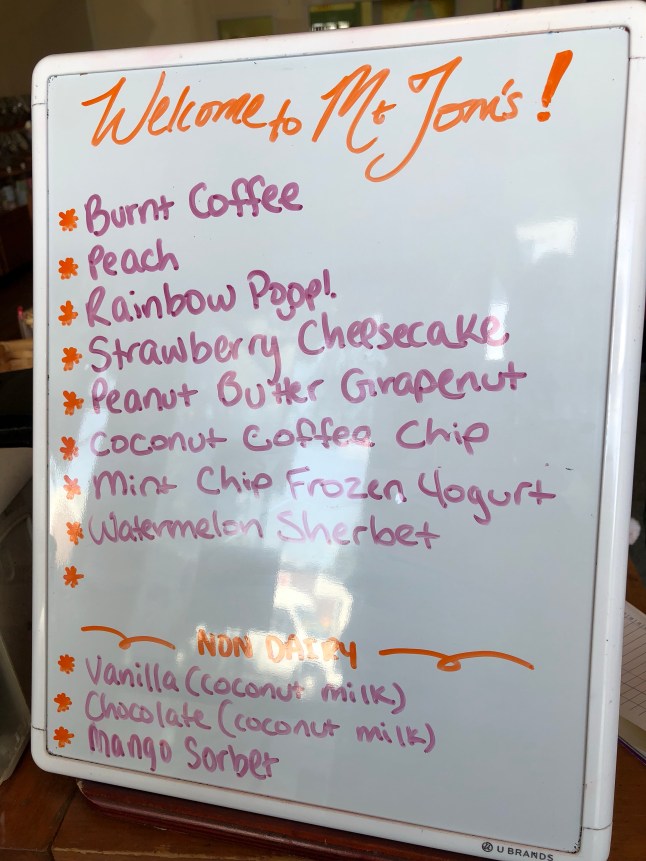 Welcome to Mt Tom's!
* Burnt Coffee
* Peach
* Rainbow Poop!
* Strawberry Cheesecake
* Peanut Butter Grapenut
* Coconut Coffee Chip
* Mint Chip Frozen Yogurt
* Watermelon Sherbet
*
NON DAIRY
* Vanilla (coconut milk)
* Chocolate (coconut milk)
* Mango Sorbet
U BRANDS